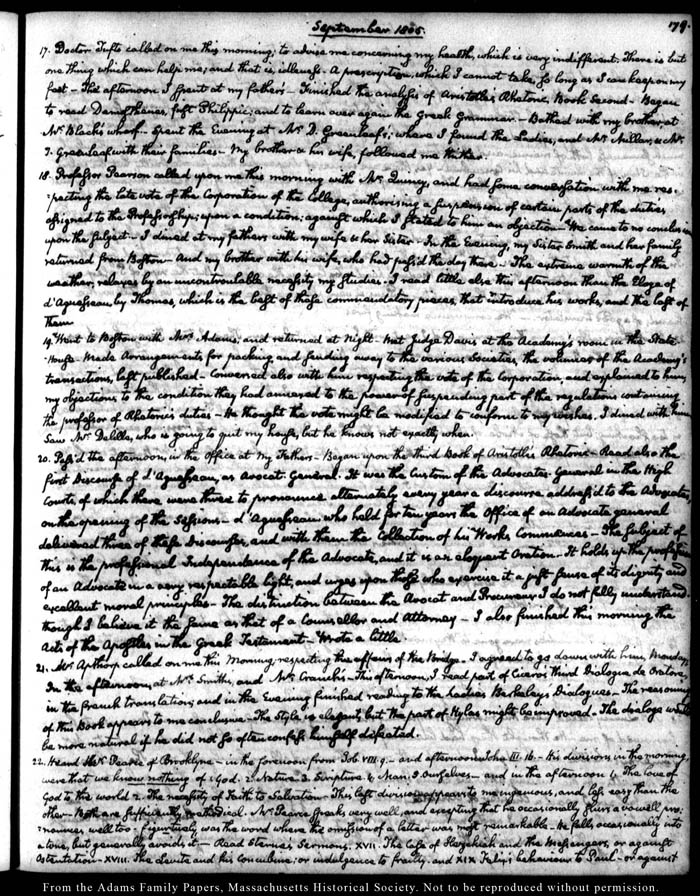 September 1805.
179.
17. Doctor Tufts called on me this morning; to advise me concerning my health, which is very indifferent. There is but
one thing which can help me; and that is, idleness. A prescription, which I cannot take, so long as I can keep on my
feet - This afternoon I spent at my father's - Finished the analysis of Aristotle's Rhetoric, Book Second - Began
to read Demosthenes, first Philippic; and to learn over again the Greek Grammar - Bathed with my brother at
Mr. Black's wharf - Spent the Evening at Mr. D. Greenleaf's; where I found the Ladies, and Mr. Miller, & Mr.
T. Greenleaf with their families - My brother & his wife, followed me thither.
18. Professor Pearson called upon me this morning with Mr. Quincy, and had some conversation with me res-
pecting the late vote of the Corporation of the College, authorising a suspension of certain parts of the duties
assigned to the Professorship; upon a condition; against which I stated to him an objection - We came to no conclusion
upon the subject - I dined at my father's with my wife & her Sister - In the Evening, my Sister Smith and her family
returned from Boston - And my brother with his wife, who had pass'd the day there - The extreme warmth of the
weather, relaxes by an uncontroulable necessity my Studies - I read little else this afternoon than the Eloge of
d'Aguesseau by Thomas, which is the best of these commendatory pieces, that introduce his works, and the last of
them
19. Went to Boston with Mrs. Adams, and returned at Night - Met Judge Davis at the Academy's room in the State-
House - Made Arrangements for packing and sending away to the various Societies, the volumes of the Academy's
transactions, last published - Conversed also with him respecting the vote of the Corporation, and explained to him,
my objections to the condition they had annexed to the power of suspending part of the regulations containing
the professor of Rhetoric's duties - He thought the vote might be modified to conform to my wishes. I dined with him
Saw Mr. Delille, who is going to quit my house, but he knows not exactly when.
20. Pass'd the afternoon, in the office at my Father's - Began upon the third Book of Aristotle's Rhetoric - Read also the
first Discourse of d'Aguesseau, as Avocat General. It was the Custom of the Advocates-General in the High
Courts, of which there were three to pronounce alternately every year a discourse address'd to the Advocates,
on the opening of the Sessions - d'Aguesseau who held for ten years the Office of an Advocate general
delivered three of these Discourses, and with them the Collection of his Works Commences - The subject of
this is the professional Independence of the Advocate, and it is an eloquent Oration - It holds up the profession
of an Advocate in a very respectable light, and urges upon those who exercise it a just sense of its dignity and
excellent moral principles - The distinction between the Avocat and Procureur I do not fully understand
though I believe it the same as that of a Counsellor and Attorney - I also finished this morning the
Acts of the Apostles in the Greek Testament - Wrote a little.
21. Mr. Apthorp called on me this Morning, respecting the affairs of the Bridge - I agreed to go down with him, Monday,
In the afternoon, at Mrs. Smith's, and Mrs. Cranch's - This afternoon, I read part of Cicero's third Dialogue de Oratore,
in the french translation; and in the Evening finished reading to the Ladies Berkeley's Dialogues - The reasoning
of this Book appears to me conclusive - The Style is elegant, but the part of Hylas might be improved - The dialogue would
be more natural if he did not so often confess himself defeated.
22. Heard Mr. Pearce of Brooklyne - in the forenoon from Job. VIII. 9 - and afternoon John III. 16 - His divisions in the morning
were that we know nothing of 1 God. 2. Nature 3. Scripture. 4. Man. 5 Ourselves - and in the afternoon 1. The love of
God to the world 2. The necessity of Faith to Salvation - This last division appears to me ingenious, and less easy than the
other - Both are sufficiently methodical - Mr. Pearce speaks very well, and excepting that he occasionally slurs a vowel pro-
nounces well too - Figuratively was the word where the omission of a letter was most remarkable - He falls occasionally into
a tone, but generally avoids it - Read Sterne's Sermons. XVII. The Case of Hezekiah and the Messengers, or against
Ostentation - XVIII. The Levite and his Concubine; or indulgence to frailty. and XIX Felix's behaviour to Paul - or against
From the Adams Family Papers, Massachusetts Historical Society. Not to be reproduced without permission.